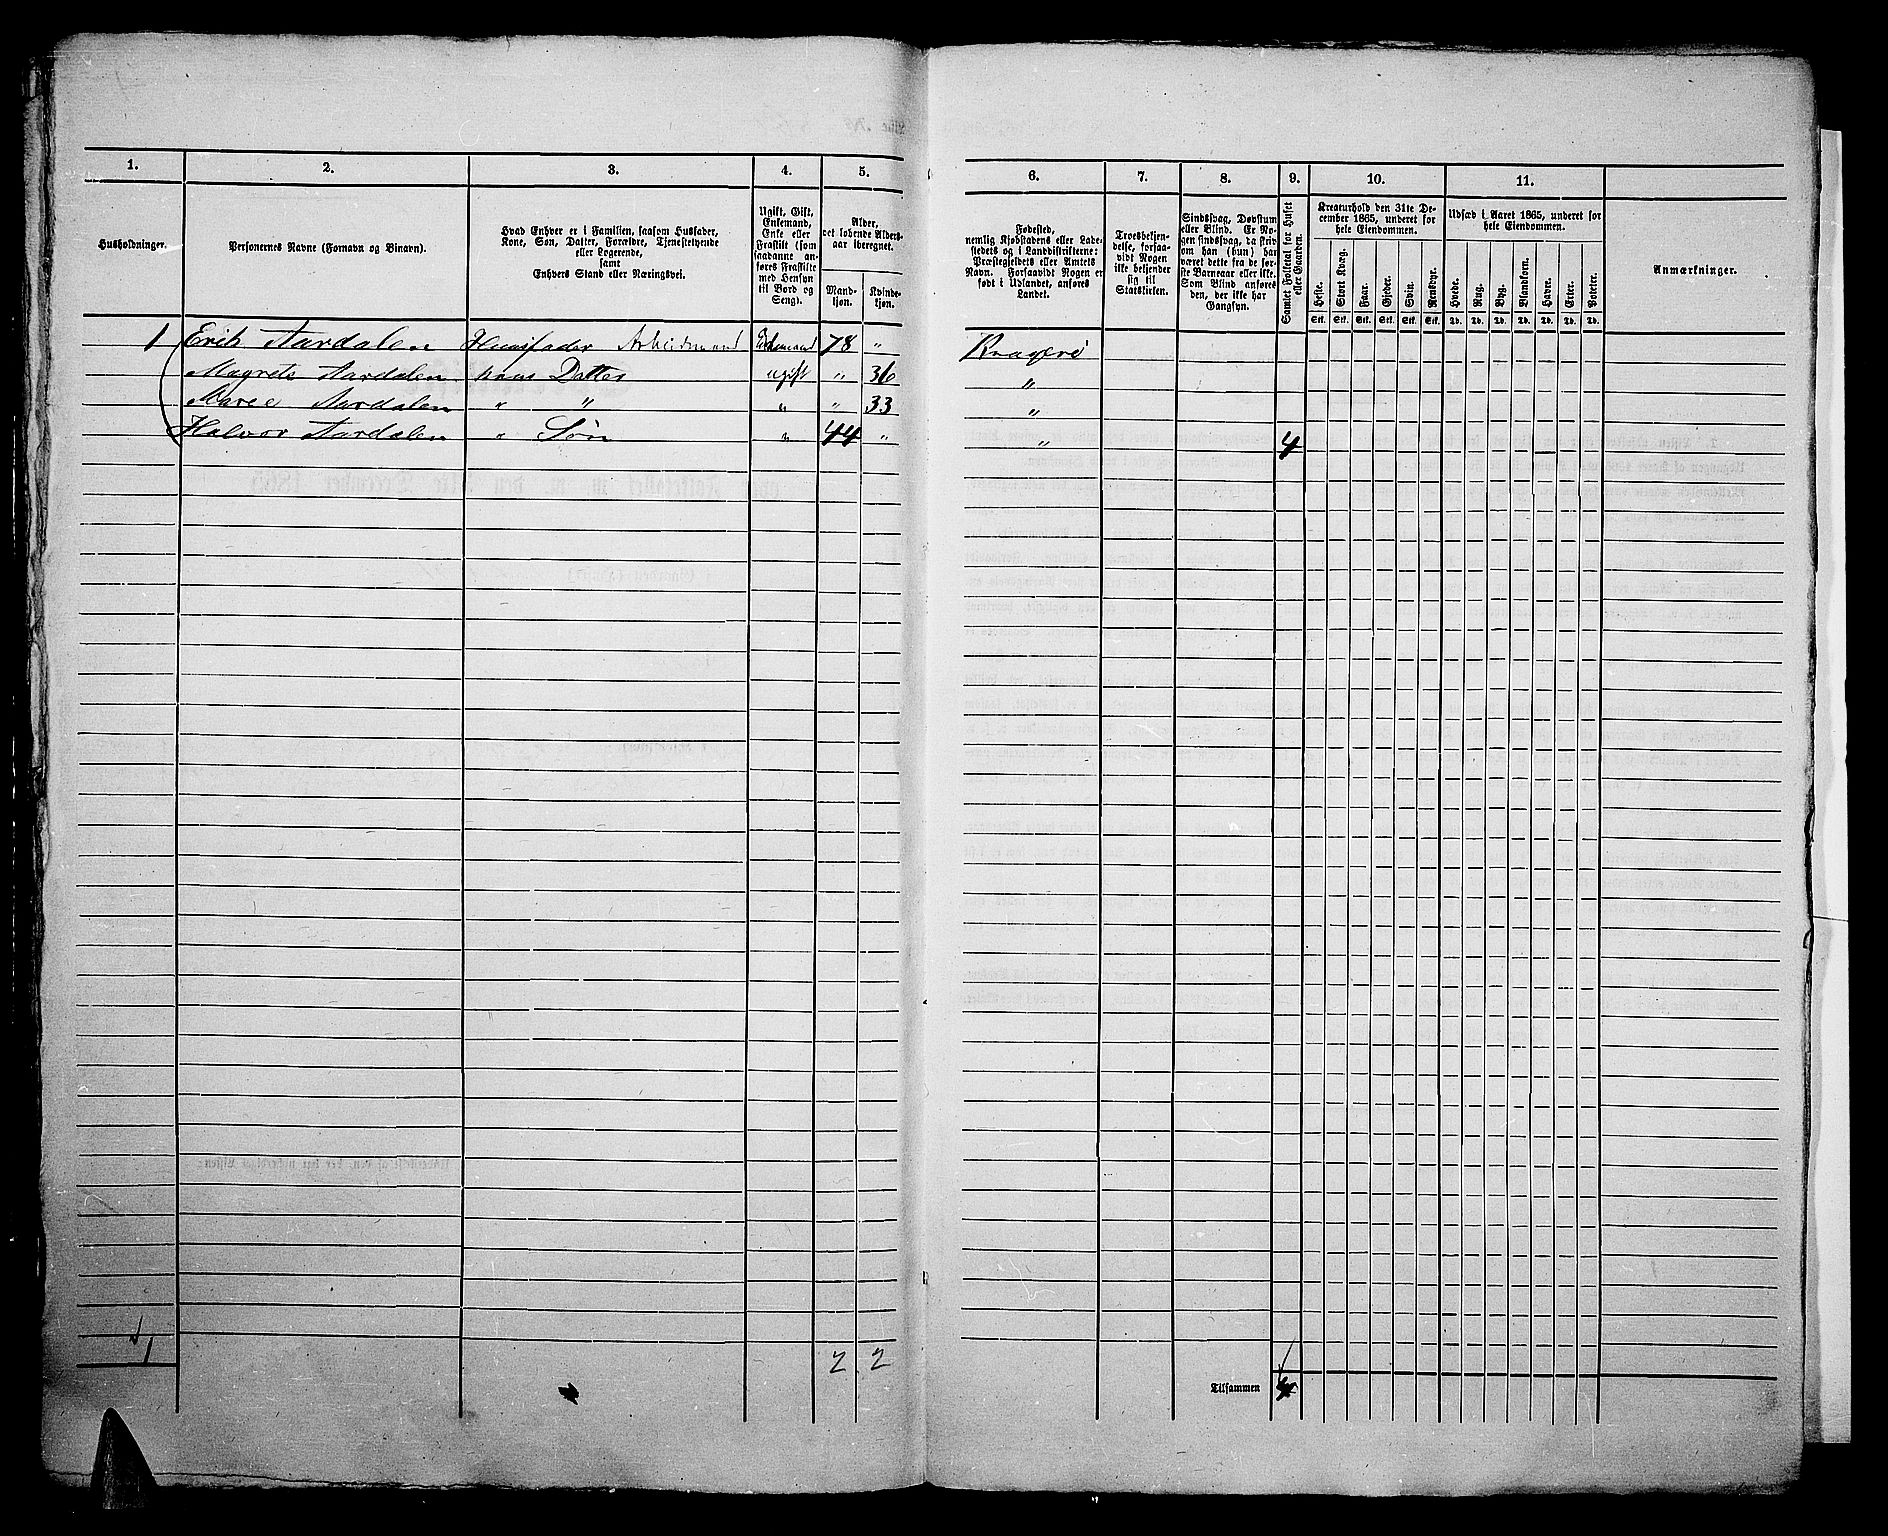 1. 2. 3. 4. 5. 6. 7. 8. 9. 10. 11.
Husholdninger.
Personernes Navne (Fornavn og Binavn).
Hvad Enhver er i Familien, saasom Husfader,
Kone, Søn, Datter, Forældre, Tjenestetyende
eller Logerende,
samt
Enhvers Stand eller Næringsvei.
Ugift, Gift,
Enkemand,
Enke eller
Fraskilt (som
saadanne an-
føres Fraskilte
med Hensyn
til Bord og
Seng).
Alder,
det løbende Alders-
aar iberegnet.
Mand-
kjøn.
Kvinde-
kjøn.
Fødested,
nemlig Kjøbstadens eller Lade-
stedets og i Landdistrikterne:
Præstegjeldets eller Amtets
Navn. Forsaavidt Nogen er
født i Udlandet, anføres
Landet.
Troesbekjen-
delse, forsaa-
vidt Nogen
ikke bekjender
sig til
Statskirken.
Sindssvag, Døvstum
eller Blind. Er No-
gen sindssvag, da skriv
om han (hun) har
været dette fra de før-
ste Barneaar eller ikke.
Som Blind anføres
den, der ikke har
Gangsyn.
Samlet Folketal for Huset
eller Gaarden.
Kreaturhold den 31te De-
cember 1865, underet for
hele Eiendommen.
Heste. Stort Kvæg. Faar. Gjeder. Svin. Rensdyr.
Stk. Stk. Stk. Stk. Stk. Stk.
Udsæd i Aaret 1865, underet for
hele Eiendommen.
Hvede. Rug. Byg. Blandkorn. Havre. Erter. Poteter.
Td. Td. Td. Td. Td. Td. Td.
Anmærkninger.
1 Erik Aardalen Huusfader Arbeidsmand Enkemand 78 " Kragerø
Magrete Aardalen hans Datter ugift " 36 "
Maree Aardalen " " " " 33 "
Halvor Aardalen " Søn " 44 " " 4
1 2 2
Tilsammen 4